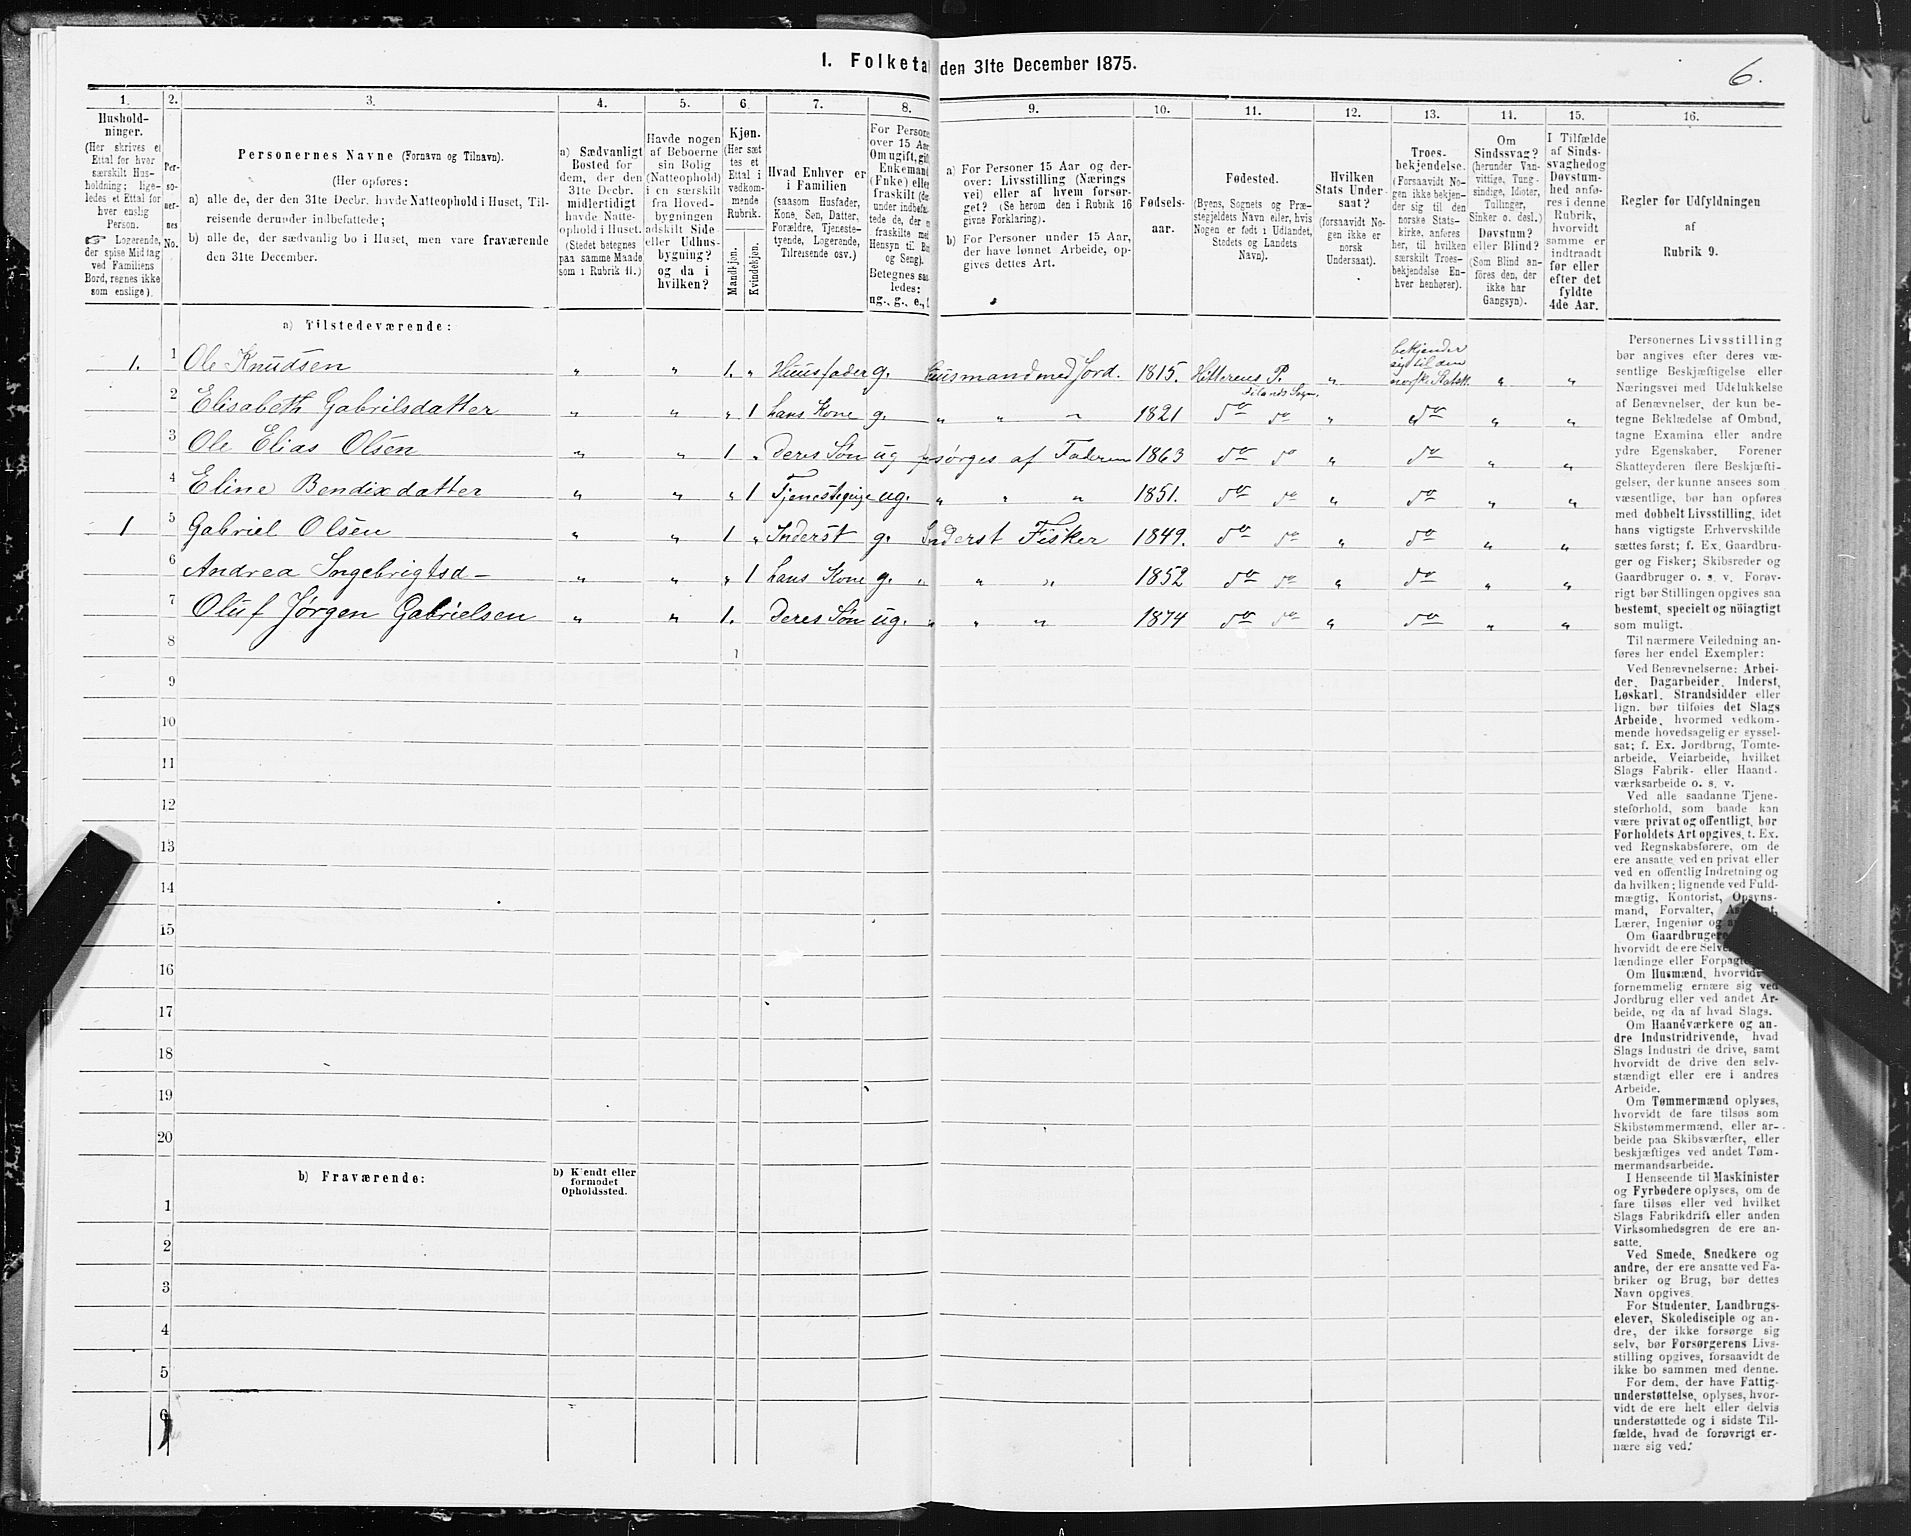 1. Folketa den 31te December 1875.
6.
1. 2. 3. 4. 5. 6. 7. 8. 9. 10. 11. 12. 13. 14. 15. 16.
Hushold-
ninger.
(Her skrives et
Ettal for hver
særskilt Hus-
holdning; lige-
ledes et Ettal for
hver enslig
Person.
☞ Logerende,
der spise Middag
ved Familiens
Bord, regnes ikke
som enslige).
Per-
so-
ner-
nes
No.
Personernes Navne (Fornavn og Tilnavn).
(Her opføres:
a) alle de, der den 31te Decbr. havde Natteophold i Huset, Til-
reisende derunder indbefattede;
b) alle de, der sædvanlig bo i Huset, men vare fraværende
den 31te December.
a) Sædvanligt
Bosted for
dem, der den
31te Decbr.
midlertidigt
havde Natte-
ophold i Huset.
(Stedet betegnes
paa samme Maade
som i Rubrik 11.)
Havde nogen
af Beboerne
sin Bolig
(Natteophold)
i en særskilt
fra Hoved-
bygningen
adskilt Side
eller Udhus-
bygning?
og da i
hvilken?
Kjøn.
(Her sæt-
tes et
Ettal i
vedkom-
mende
Rubrik.
Mandkjøn.
Kvindekjøn.
Hvad Enhver er
i Familien
(saasom Husfader,
Kone, Søn, Datter,
Forældre, Tjeneste-
tyende, Logerende,
Tilreisende osv.)
For Persone
over 15 Aar
Om ugift, gift
Enkemand
(Enke) eller
fraskilt (der
under indbefat-
tede de, der er
fraskilte med
Hensyn til Bo
og Seng).
Betegnes saa-
ledes:
ug., g., e.,
a) For Personer 15 Aar og der-
over: Livsstilling (Nærings-
vei) eller af hvem forsør-
get? (Se herom den i Rubrik 16
givne Forklaring).
b) For Personer under 15 Aar,
der have lønnet Arbeide, op-
gives dettes Art.
Fødsels-
aar.
Fødested.
(Byens, Sognets og Præ-
stegjeldets Navn eller, hvis
Nogen er født i Udlandet,
Stedets og Landets
Navn).
Hvilken
Stats Under-
saat?
(forsaavidt No-
gen ikke er
norsk
Undersaat).
Troes-
bekjendelse.
(Forsaavidt No-
gen ikke bekjen-
der sig til den
norske Stats-
kirke, anføres
her, til hvilken
særskilt Troes-
bekjendelse En-
hver henhører).
Om
Sindssvag?
(herunder Van-
vittige, Tung-
sindige, Idioter,
Tullinger,
Sinker o. desl.)
Døvstum?
eller Blind?
(Som Blind an-
føres den, der
ikke har
Gangsyn).
I Tilfælde
af Sinds-
svaghed og
Døvstum-
hed anfø-
res i denne
Rubrik,
hvorvidt
samme er
indtraadt
før eller
efter det
fyldte
4de Aar.
Regler for Udfyldningen
af
Rubrik 9.
a) Tilstedeværende:
1. 1 Ole Knudsen " " 1. " Huusfader g. Huusmand med Jord. 1815. Hitterens P. Filands Sogn. " bekjender sig til den norsk. Statsk. " "
2 Elisabeth Gabrilsdatter " " " 1 hans Kone g. " " " 1821 do do " do " "
3 Ole Elias Olsen " " 1 " Deres Søn ug forsørges af Faderen 1863 do do " do " "
4 Eline Bendixdatter " " " 1 Tjenestepige ug. " " " 1851. do do " do " "
1 5 Gabriel Olsen " " 1 " Inderst g. Inderst Fisker 1849. do do " do " "
6 Andrea Ingebrigtsd- " " " 1 hans Kone g. " " " 1852 do do " do " "
7 Oluf Jørgen Gabrielsen " " 1. Deres Søn ug. " " " 1874 do do " do " "
8
9
10
11
12
13
14
15
16
17
18
19
20
b) Fraværende:
b) Kjendt eller
formodet
Opholdssted.
1
2
3
4
5
6
Personernes Livsstilling
bør angives efter deres væ-
sentlige Beskjæftigelse eller
Næringsvei med Udelukkelse
af Benævnelser, der kun be-
tegne Beklædelse af Ombud,
tagne Examina eller andre
ydre Egenskaber. Forener
Skatteyderen flere Beskjæfti-
gelser, der kunne ansees som
væsentlige, bør han opføres
med dobbelt Livsstilling, idet
hans vigtigste Erhvervskilde
sættes først; f. Ex. Gaardbru-
ger og Fisker; Skibsreder og
Gaardbruger o. s. v. Forøv-
rigt bør Stillingen opgives saa
bestemt, specielt og nöiagtigt
som muligt.
Til nærmere Veiledning an-
føres her endel Exempler:
Ved Benævnelserne: Arbei-
der, Dagarbeider, Inderst,
Løskarl, Strandsidder eller
lign. bør tilføies det Slags
Arbeide, hvormed vedkom-
mende hovedsagelig er syssel-
sat; f. Ex. Jordbrug, Tomte-
arbeide, Veiarbeide, hvilket
Slags Fabrik- eller Haand-
værksarbeide o. s. v.
Ved alle saadanne Tjene-
steforhold, som baade kan
være privat og offentligt, bør
Forholdets Art opgives, t. Ex.
ved Regnskabsførere, om de
ere ansatte ved en privat eller
ved en offentlig Indretning og
da hvilken; lignende ved Fuld-
mægtig, Kontorist, Opsyns-
mand, Forvalter, As
Lærer, Ingeniør og
Om Gaardbrugere
hvorvidt de ere Selv
lændinge eller Forpagte
Om Husmænd, hvorvidt
fornemmelig ernære sig ved
Jordbrug eller ved andet Ar-
beide, og da af hvad Slags.
Om Haandværkere og an-
dre Industridrivende, hvad
Slags Industri de drive, samt
hvorvidt de drive den selv-
stændigt eller ere i andres
Arbeide.
Om Tømmermænd oplyses,
hvorvidt de fare tilsøs som
Skibstømmermænd, eller ar-
beide paa Skibsværfter, eller
beskjæftiges ved andet Tøm-
mermandsarbeide.
I Henseende til Maskinister
og Fyrbødere oplyses, om de
fare tilsøs eller ved hvilket
Slags Fabrikdrift eller anden
Virksomhedsgren de ere an-
satte.
Ved Smede, Snedkere og
andre, der ere ansatte ved Fa-
briker og Brug, bør dettes
Navn opgives.
For Studenter, Landbrugs-
elever, Skoledisciple og an-
dre, der ikke forsørge sig
selv, bør Forsørgerens Livs-
stilling opgives, forsaavidt de
ikke bo sammen med denne.
For dem, der have Fattig-
understøttelse, oplyses, hvor-
vidt de ere helt eller delvis
understøttede og i sidste Til-
fælde, hvad de forøvrigt er-
nære sig ved.